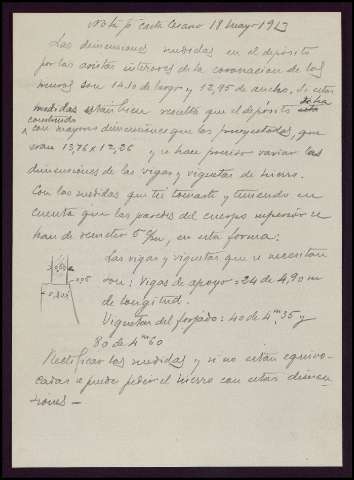 Nota pª carta Cesareo 18 mayo 1913
Las dimensiones medidas en el depósito
por las aristas interiores de la coronacion de los
muros son 14,10 de largo y 12,95 de ancho. Si estas
medidas están bien resulta que el depósito se ha
construido
con mayores dimensiones que las proyectadas, que
eran 13,76 x 12,26 y se hace preciso variar las
dimensiones de las vigas y viguetas de hierro.
Con las medidas que tu tomaste y teniendo en
cuenta que las paredes del cuerpo superior se
han de remeter 5 c/m, en esta forma:
Las vigas y viguetas que se necesitan
son: Vigas de apoyo = 24 de 4,90 m
de longitud.
Viguetas del forjado: 40 de 4,m35 y
80 de 4m60
Rectificar las medidas y si no están equivo-
cadas se puede pedir el hierro con estas dimen-
siones —
0,05